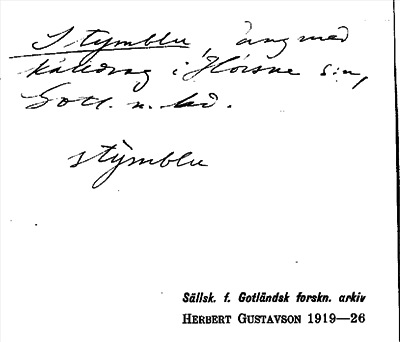 Stymblu, äng med
källdrag i Hörsne s:n,
Gotl. n. hd.
stymblu
Sällsk. f. Gotländsk forskn. arkiv
HERBERT GUSTAVSON 1919—26